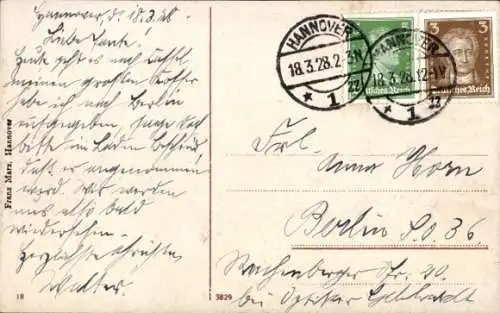 Hannover, d. 18.3.28.
Liebe Tante!
Heute geht es nach Cassel
meinen großen Koffer
habe ich nach Berlin
aufgegeben. Sage doch
bitte im Laden Bescheid,
daß er angenommen
wird. Wir werden
uns also bald
wiedersehen.
Herzlichste Grüße
Walter.
Franz Marx, Hannover
18
3829
HANNOVER
18.3.28.
* 1
HANNOVER
18.3.28.12-1N
* 1
3
Deutsches Reich
Frl.
Anna Horn
Berlin S.O. 36
Str. 20
bei Optiker